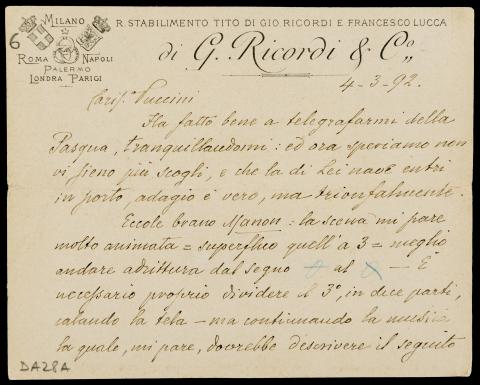 6
MILANO
ROMA NAPOLI
PALERMO
LONDRA PARIGI
R. STABILIMENTO TITO DI GIO. RICORDI E FRANCESCO LUCCA
di G. Ricordi & Co.
4-3-92.
Caris. Puccini
Ha fatto bene a telegrafarmi della
Pasqua, tranquillandomi: ed ora speriamo non
vi sieno più scogli, e che la di Lei nave entri
in porto, adagio è vero, ma trionfalmente.
Eccole brano Manon: la scena mi pare
molto animata = superfluo quell' a 3 = meglio
andare adrittura dal segno al — È
necessario proprio dividere il 3º, in due parti,
calando la tela – ma continuando la musica
la quale, mi pare, dovrebbe descrivere il seguito
DA28A